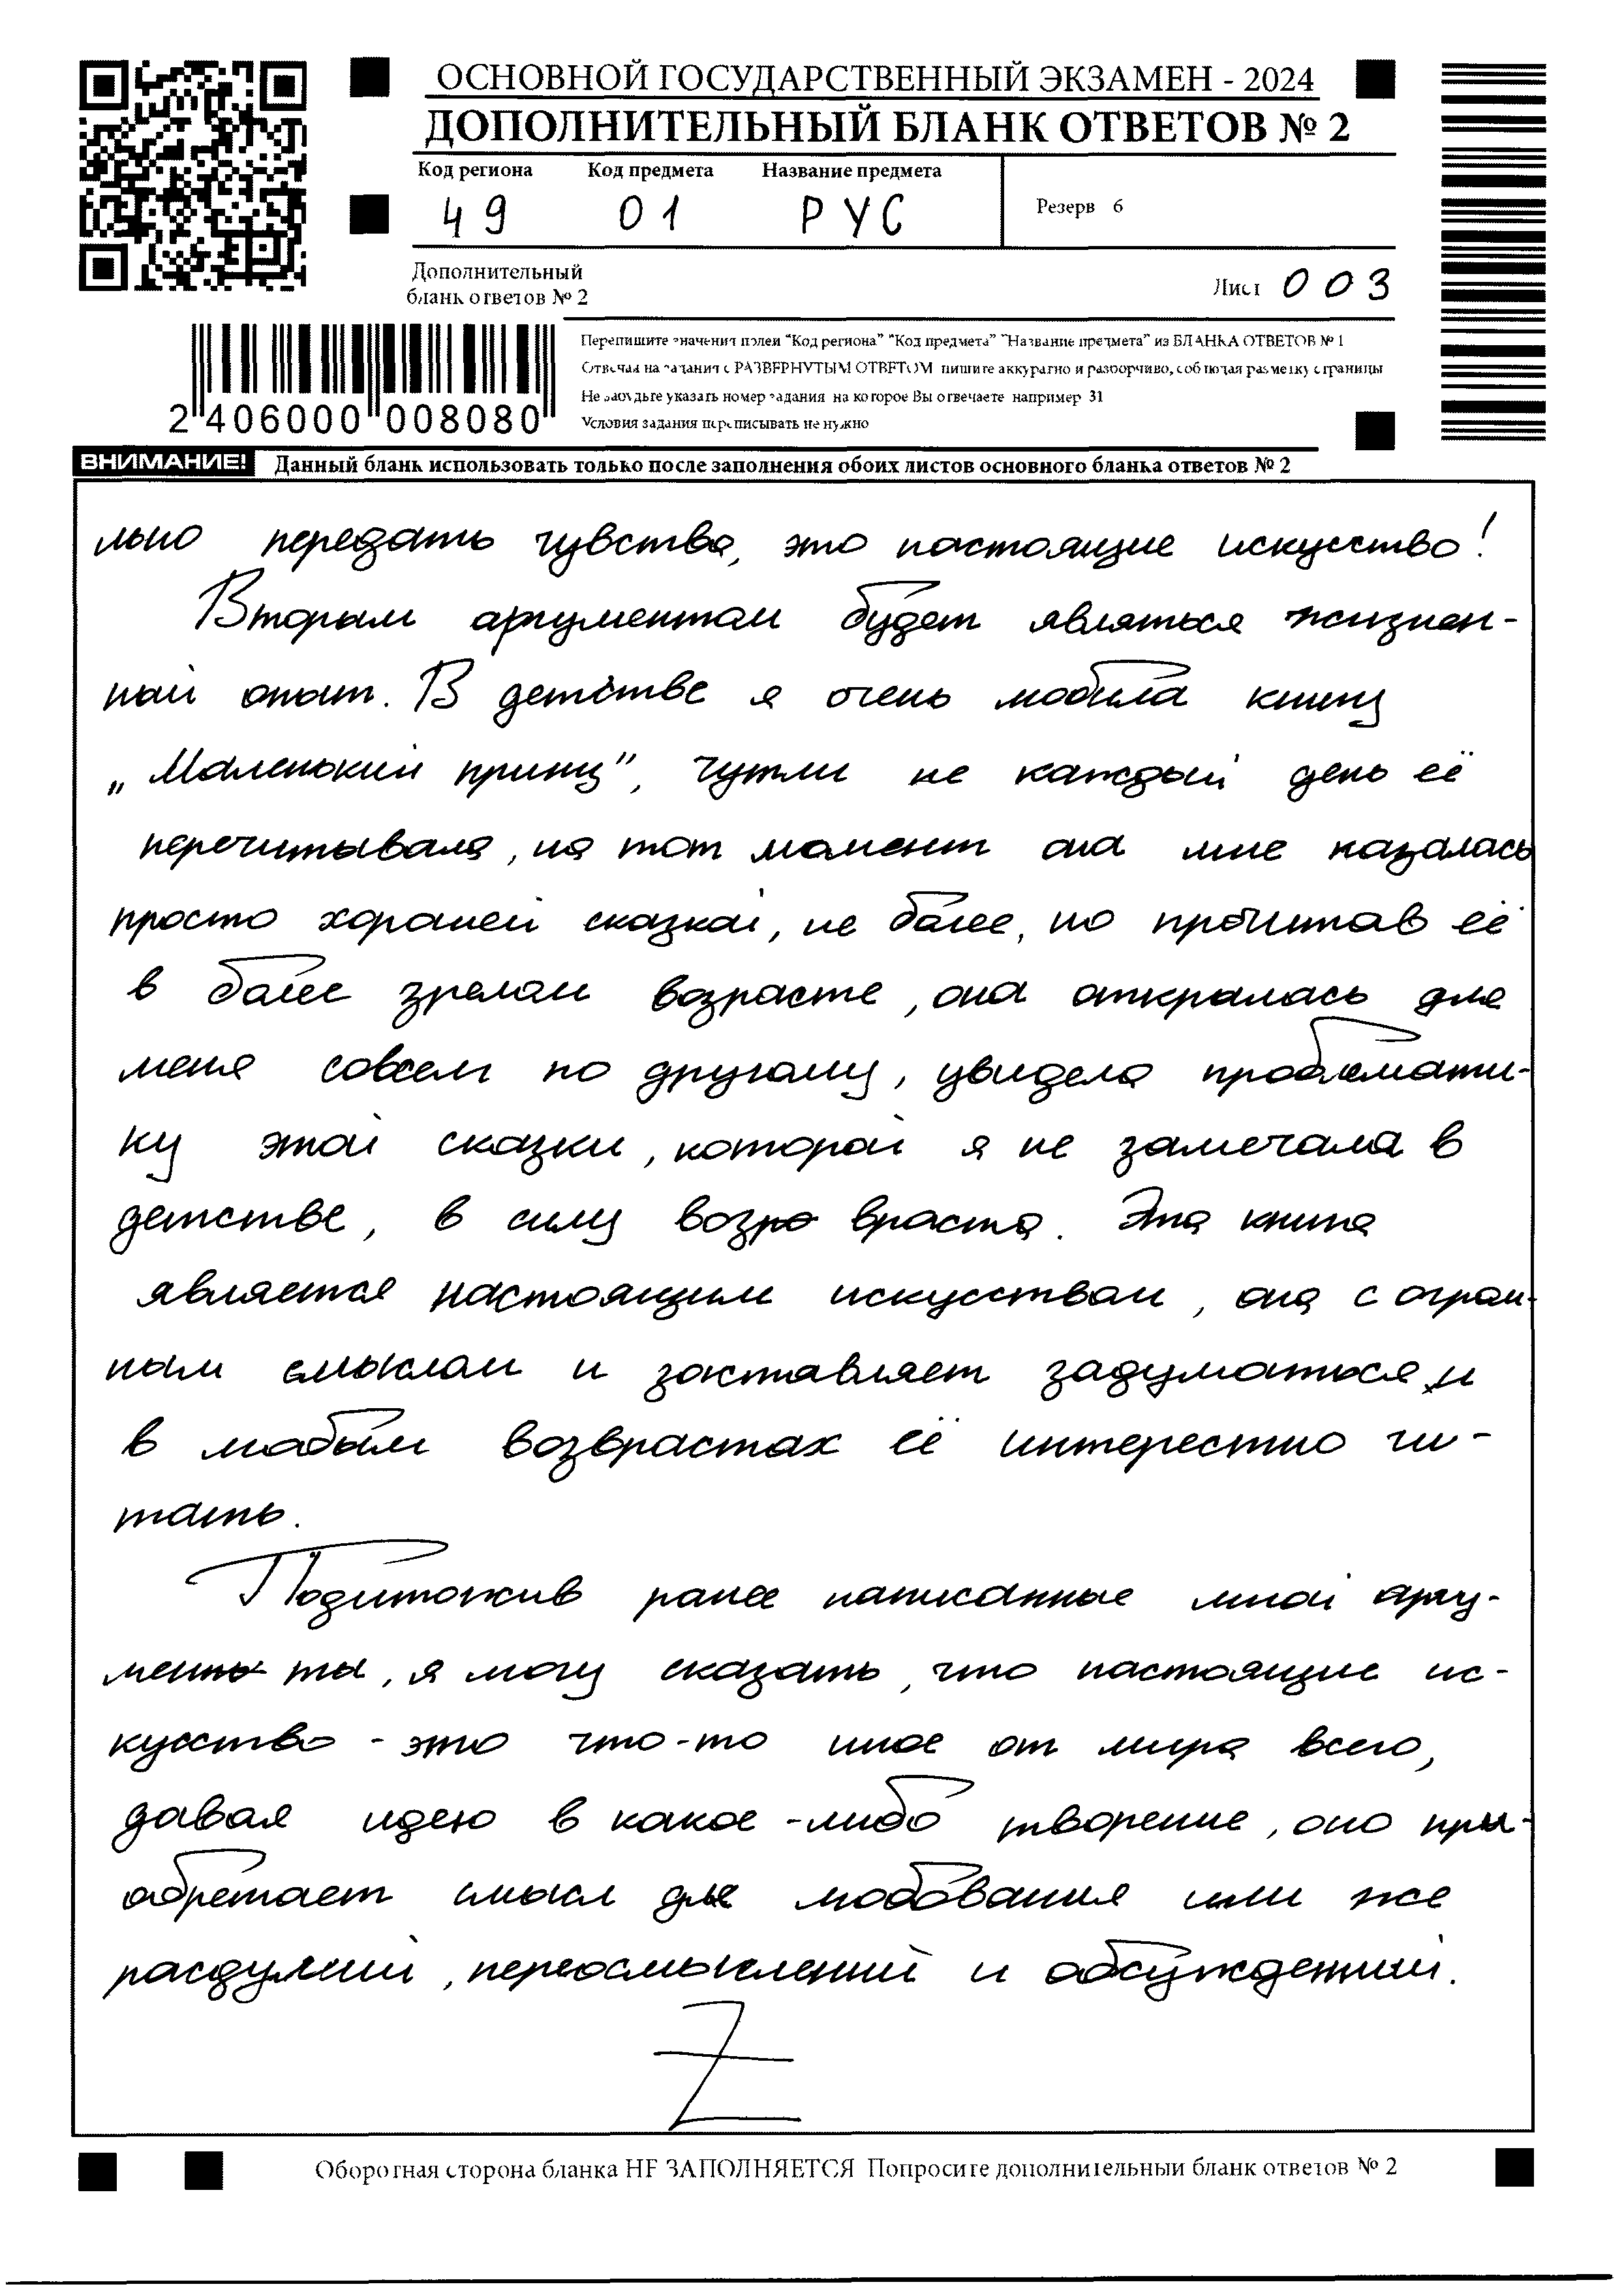 ОСНОВНОЙ ГОСУДАРСТВЕННЫЙ ЭКЗАМЕН - 2024
ДОПОЛНИТЕЛЬНЫЙ БЛАНК ОТВЕТОВ № 2
Код региона Код предмета Название предмета
49 01 РУС
Резерв 6
Дополнительный
бланк ответов № 2
Лист 003
Перепишите значения полей "Код региона" "Код предмета" "Название предмета" из БЛАНКА ОТВЕТОВ № 1
Отвечая на задания с РАЗВЕРНУТЫМ ОТВЕТОМ пишите аккуратно и разборчиво, соблюдая разметку страницы
Не забудьте указать номер задания на которое Вы отвечаете например 31
Условия задания переписывать не нужно
2 406000 008080
ВНИМАНИЕ! Данный бланк использовать только после заполнения обоих листов основного бланка ответов № 2
льно передать чувства, это настоящие искусство!
Вторым аргументом будет являться жизнен-
ный опыт. В детстве я очень любила книгу
„Маленький принц”, чутли не каждый день её
перечитывала, на тот момент она мне казалась
просто хорошей сказкой, не более, но прочитав её
в более зрелом возрасте, она открылась для
меня совсем по другому, увидела проблемати-
ку этой сказки, которой я не замечала в
детстве, в силу возро враста. Эта книга
является настоящим искусством, она с огром-
ным смыслом и заставляет задуматься, и
в любым возврастах её интерестно чи-
тать.
Подитожив ранее написанные мной аргу-
менты ты, я могу сказать, что настоящие ис-
кусство - это что-то иное от мира всего,
давая идею в какое-либо творение, оно при-
обретает смысл для любования или же
расдумий, переосмыслений и обсуждений.
Z
Оборотная сторона бланка НЕ ЗАПОЛНЯЕТСЯ Попросите дополнительный бланк ответов № 2